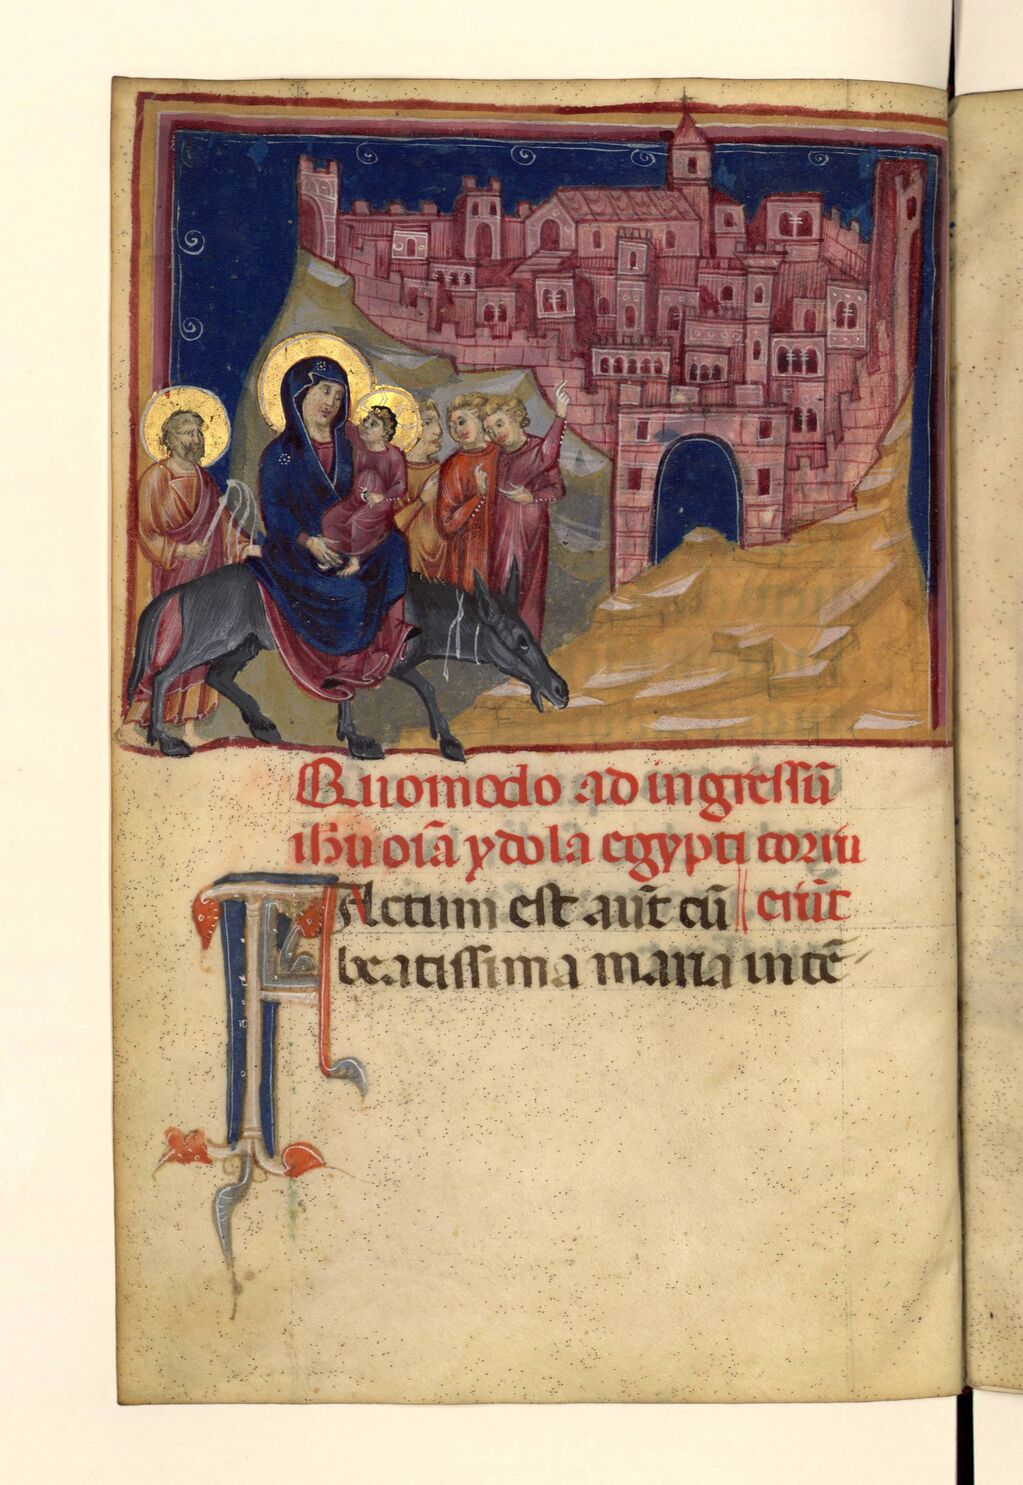 Quomodo ad ingressū
ihu oīa ydola egypti corru
Factum est aūt cū || erūt
beatissima maria in tē